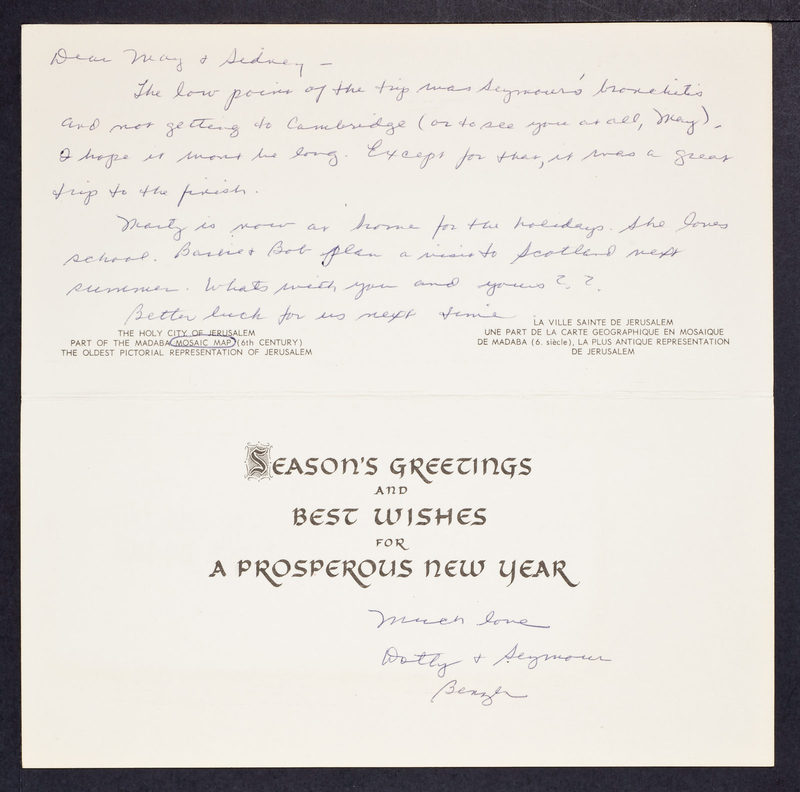 Dear May & Sidney –
The low point of the trip was Seymour's bronchitis
and not getting to Cambridge (or to see you at all, May).
I hope it wont be long. Except for that, it was a great
trip to the finish.
Marty is now at home for the holidays. She loves
school. & Bob plan a visit to Scotland next
summer. Whats with you and yours? ?
Better luck for us next time
THE HOLY CITY OF JERUSALEM
PART OF THE MADABA MOSAIC MAP (6th CENTURY)
THE OLDEST PICTORIAL REPRESENTATION OF JERUSALEM
LA VILLE SAINTE DE JERUSALEM
UNE PART DE LA CARTE GEOGRAPHIQUE EN MOSAIQUE
DE MADABA (6. siècle), LA PLUS ANTIQUE REPRESENTATION
DE JERUSALEM
SEASON'S GREETINGS
AND
BEST WISHES
FOR
A PROSPEROUS NEW YEAR
Much love
Dotty & Seymour